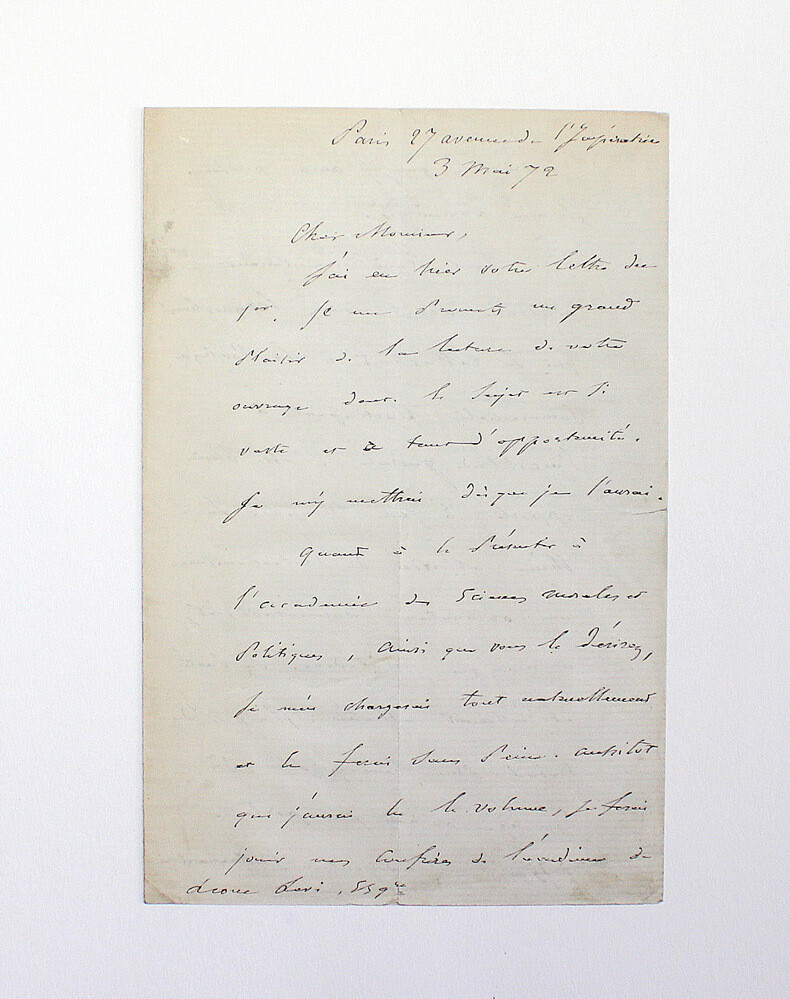 Paris 27 avenue de l'Impératrice
3 Mai 72
Cher Monsieur,
J'ai eu hier votre lettre du
1er. Je me promets un grand
plaisir de la lecture de votre
ouvrage dont le sujet est si
vaste et a tant d'opportunité.
Je m'y mettrai dès que je l'aurai.
Quant à le présenter à
l'académie des Sciences morales et
Politiques, ainsi que vous le désirez,
je m'en chargerai tout naturellement
et le ferai sans peine. aussitot
que j'aurai lu le volume, je ferai
jouir mes confrères de l'érudition de
Leone Levi, Esqre